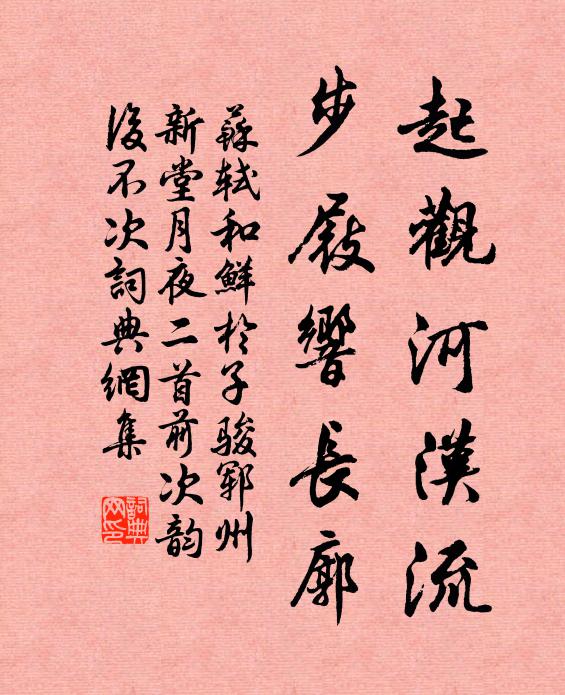 起觀河漢流
步屧響長廊
蘇軾和鮮於子駿鄆州
新堂月夜二首前次韵
後不次詞典網集
詞典
网印